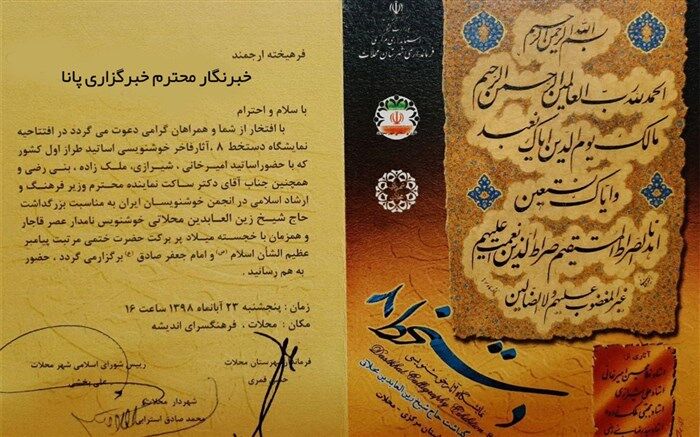 فرهیخته ارجمند
خبرنگار محترم خبرگزاری پانا
با سلام و احترام
با افتخار از شما و همراهان گرامی دعوت می گردد در افتتاحیه
نمایشگاه دستخط ۸ ،آثارفاخر خوشنویسی اساتید طراز اول کشور
که با حضوراساتید امیرخانی ، شیرازی، ملک زاده ، بنی رضی و
همچنین جناب آقای دکتر ساکت نماینده محترم وزیر فرهنگ و
ارشاد اسلامی در انجمن خوشنویسان ایران به مناسبت بزرگداشت
حاج شیخ زین العابدین محلاتی خوشنویس نامدار عصر قاجار
و همزمان با خجسته میلاد پر برکت حضرت ختمی مرتبت پیامبر
عظیم الشأن اسلام (ص) و امام جعفر صادق (ع) برگزارمی گردد ، حضور
به هم رسانید .
زمان : پنجشنبه ۲۳ آبانماه ۱۳۹۸ ساعت ۱۶
مکان : محلات ، فرهنگسرای اندیشه
فرماندار شهرستان محلات
قمری
رییس شورای اسلامی شهر محلات
علی بخشی
شهردار محلات
محمد صادق
فرمانداری شهرستان محلات
بسم الله الرحمن الرحیم
الحمد لله رب العالمین الرحمن الرحیم
مالک یوم الدین ایاک نعبد
و ایاک نستعین
اهدنا الصراط المستقیم صراط الذین انعمت علیهم
غیر المغضوب علیهم و لا الضالین
دستخط ۸
نمایشگاه آثار خوشنویسی
بزرگداشت حاج شیخ زین العابدین محلاتی
استان مرکزی - محلات
آثاری از:
استاد غلامحسین امیرخانی
استاد علی شیرازی